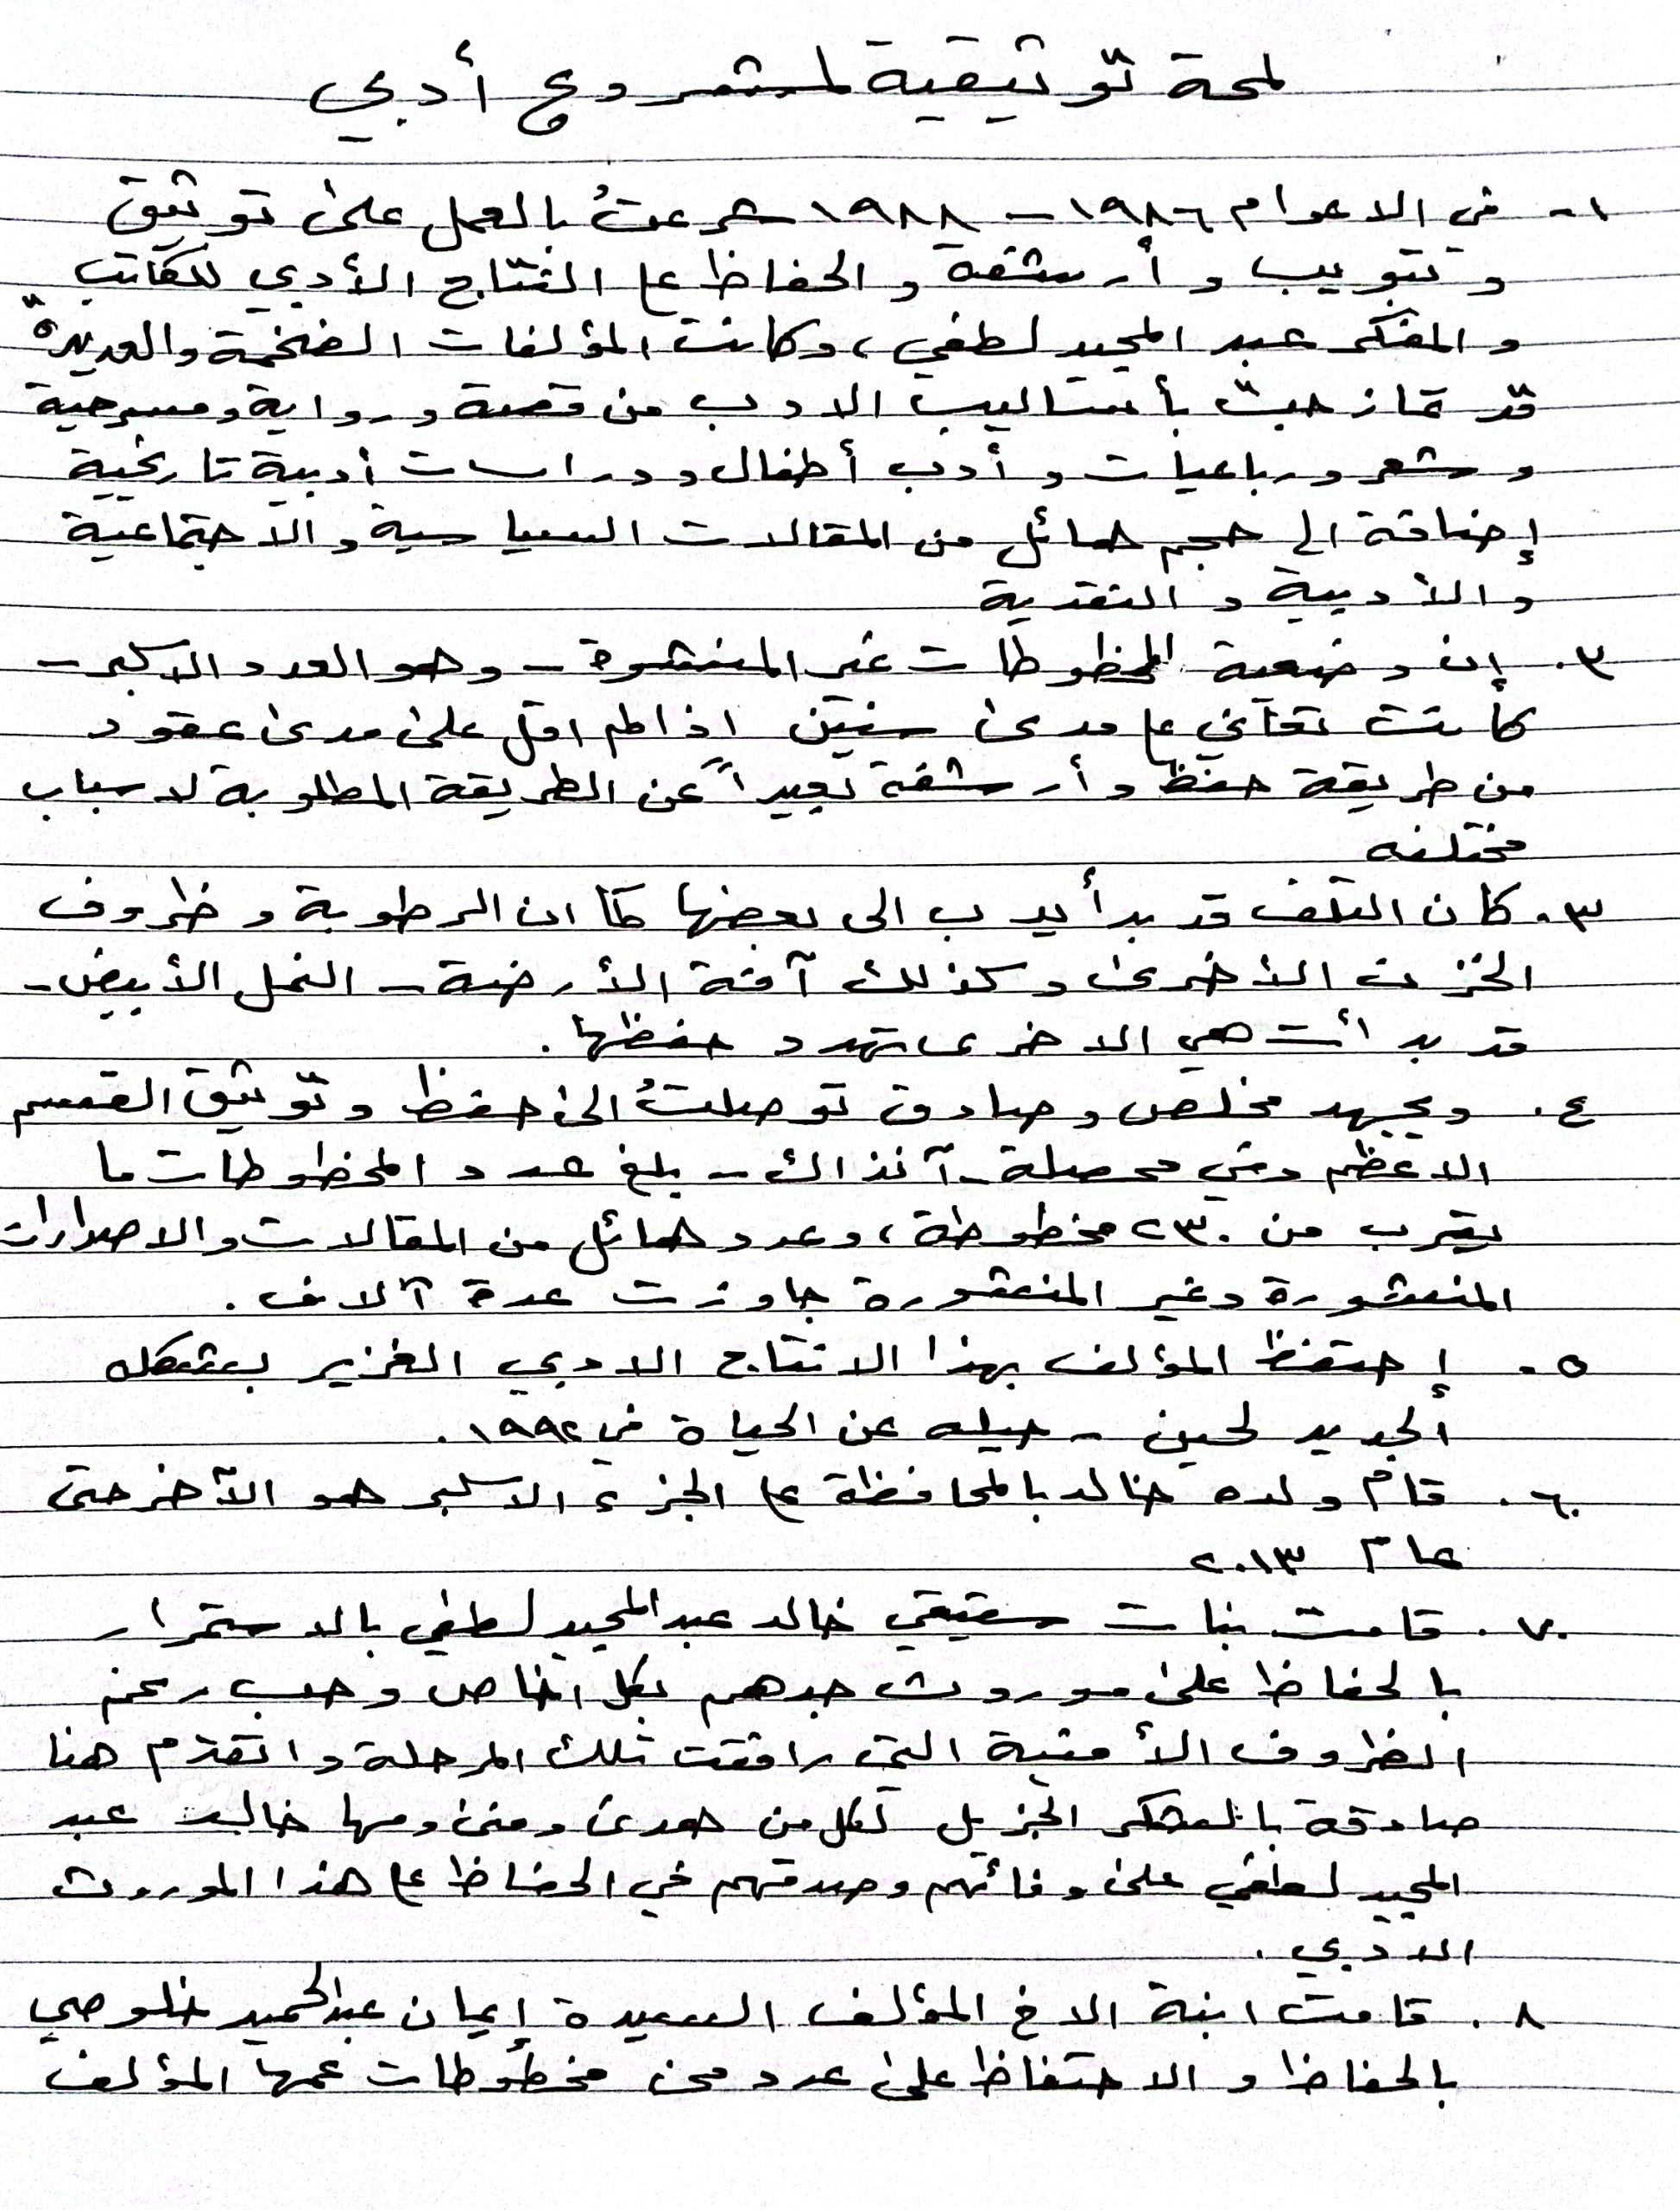 لمحة توثيقية لمشروع أدبي
١- في الاعوام ١٩٨٦ - ١٩٨٨ شرعتُ بالعمل على توثيق
وتبويب وأرشفة والحفاظ على النتاج الأدبي للكاتب
والمفكر عبد المجيد لطفي، وكانت المؤلفات الضخمة والعديدة
قد تمازجت بأساليب الادب من قصة ورواية ومسرحية
وشعر ورباعيات وأدب أطفال ودراسات أدبية تاريخية
إضافة الى حجم هائل من المقالات السياسية والاجتماعية
والأدبية والنقدية
٢. إن وضعية المخطوطات غير المنشورة - وهو العدد الاكبر -
كانت تعاني على مدى سنين إذا لم اقل على مدى عقود
من طريقة حفظ وأرشفة بعيداً عن الطريقة المطلوبة لاسباب
مختلفه
٣. كان التلف قد بدأ يدب الى بعضها كما ان الرطوبة وظروف
الخزن الأخرى وكذلك آفة الأرضة - النمل الأبيض -
قد بدأت هي الاخرى تهدد حفظها.
٤. وبجهد مخلص وصادق توصلتُ الى حفظ وتوثيق القسم
الاعظم وفي محصلة - آنذاك - بلغ عدد المخطوطات ما
يقرب من ٢٣٠ مخطوطة، وعدد هائل من المقالات والاصدارات
المنشورة وغير المنشورة جاوزت عدة آلاف.
٥. إحتفظ المؤلف بهذا الانتاج الادبي الغزير بشكله
الجديد لحين - رحيله عن الحياة في ١٩٩٢.
٦. قام ولده خالد بالمحافظة على الجزء الاكبر هو الآخر حتى
عام ٢٠١٣
٧. قامت بنات شقيقي خالد عبد المجيد لطفي بالاستمرار
بالحفاظ على موروث جدهم بكل اخلاص وحب رغم
الظروف الأمنية التي رافقت تلك المرحلة واتقدم هنا
صادقة بالشكر الجزيل لكل من هدى ومنى ومها خالد عبد
المجيد لطفي على وفائهم وصدقهم في الحفاظ على هذا الموروث
الادبي.
٨. قامت ابنة الاخ المؤلف السيدة إيمان عبد الحميد خلوصي
بالحفاظ والاحتفاظ على عدد من مخطوطات عمها المؤلف